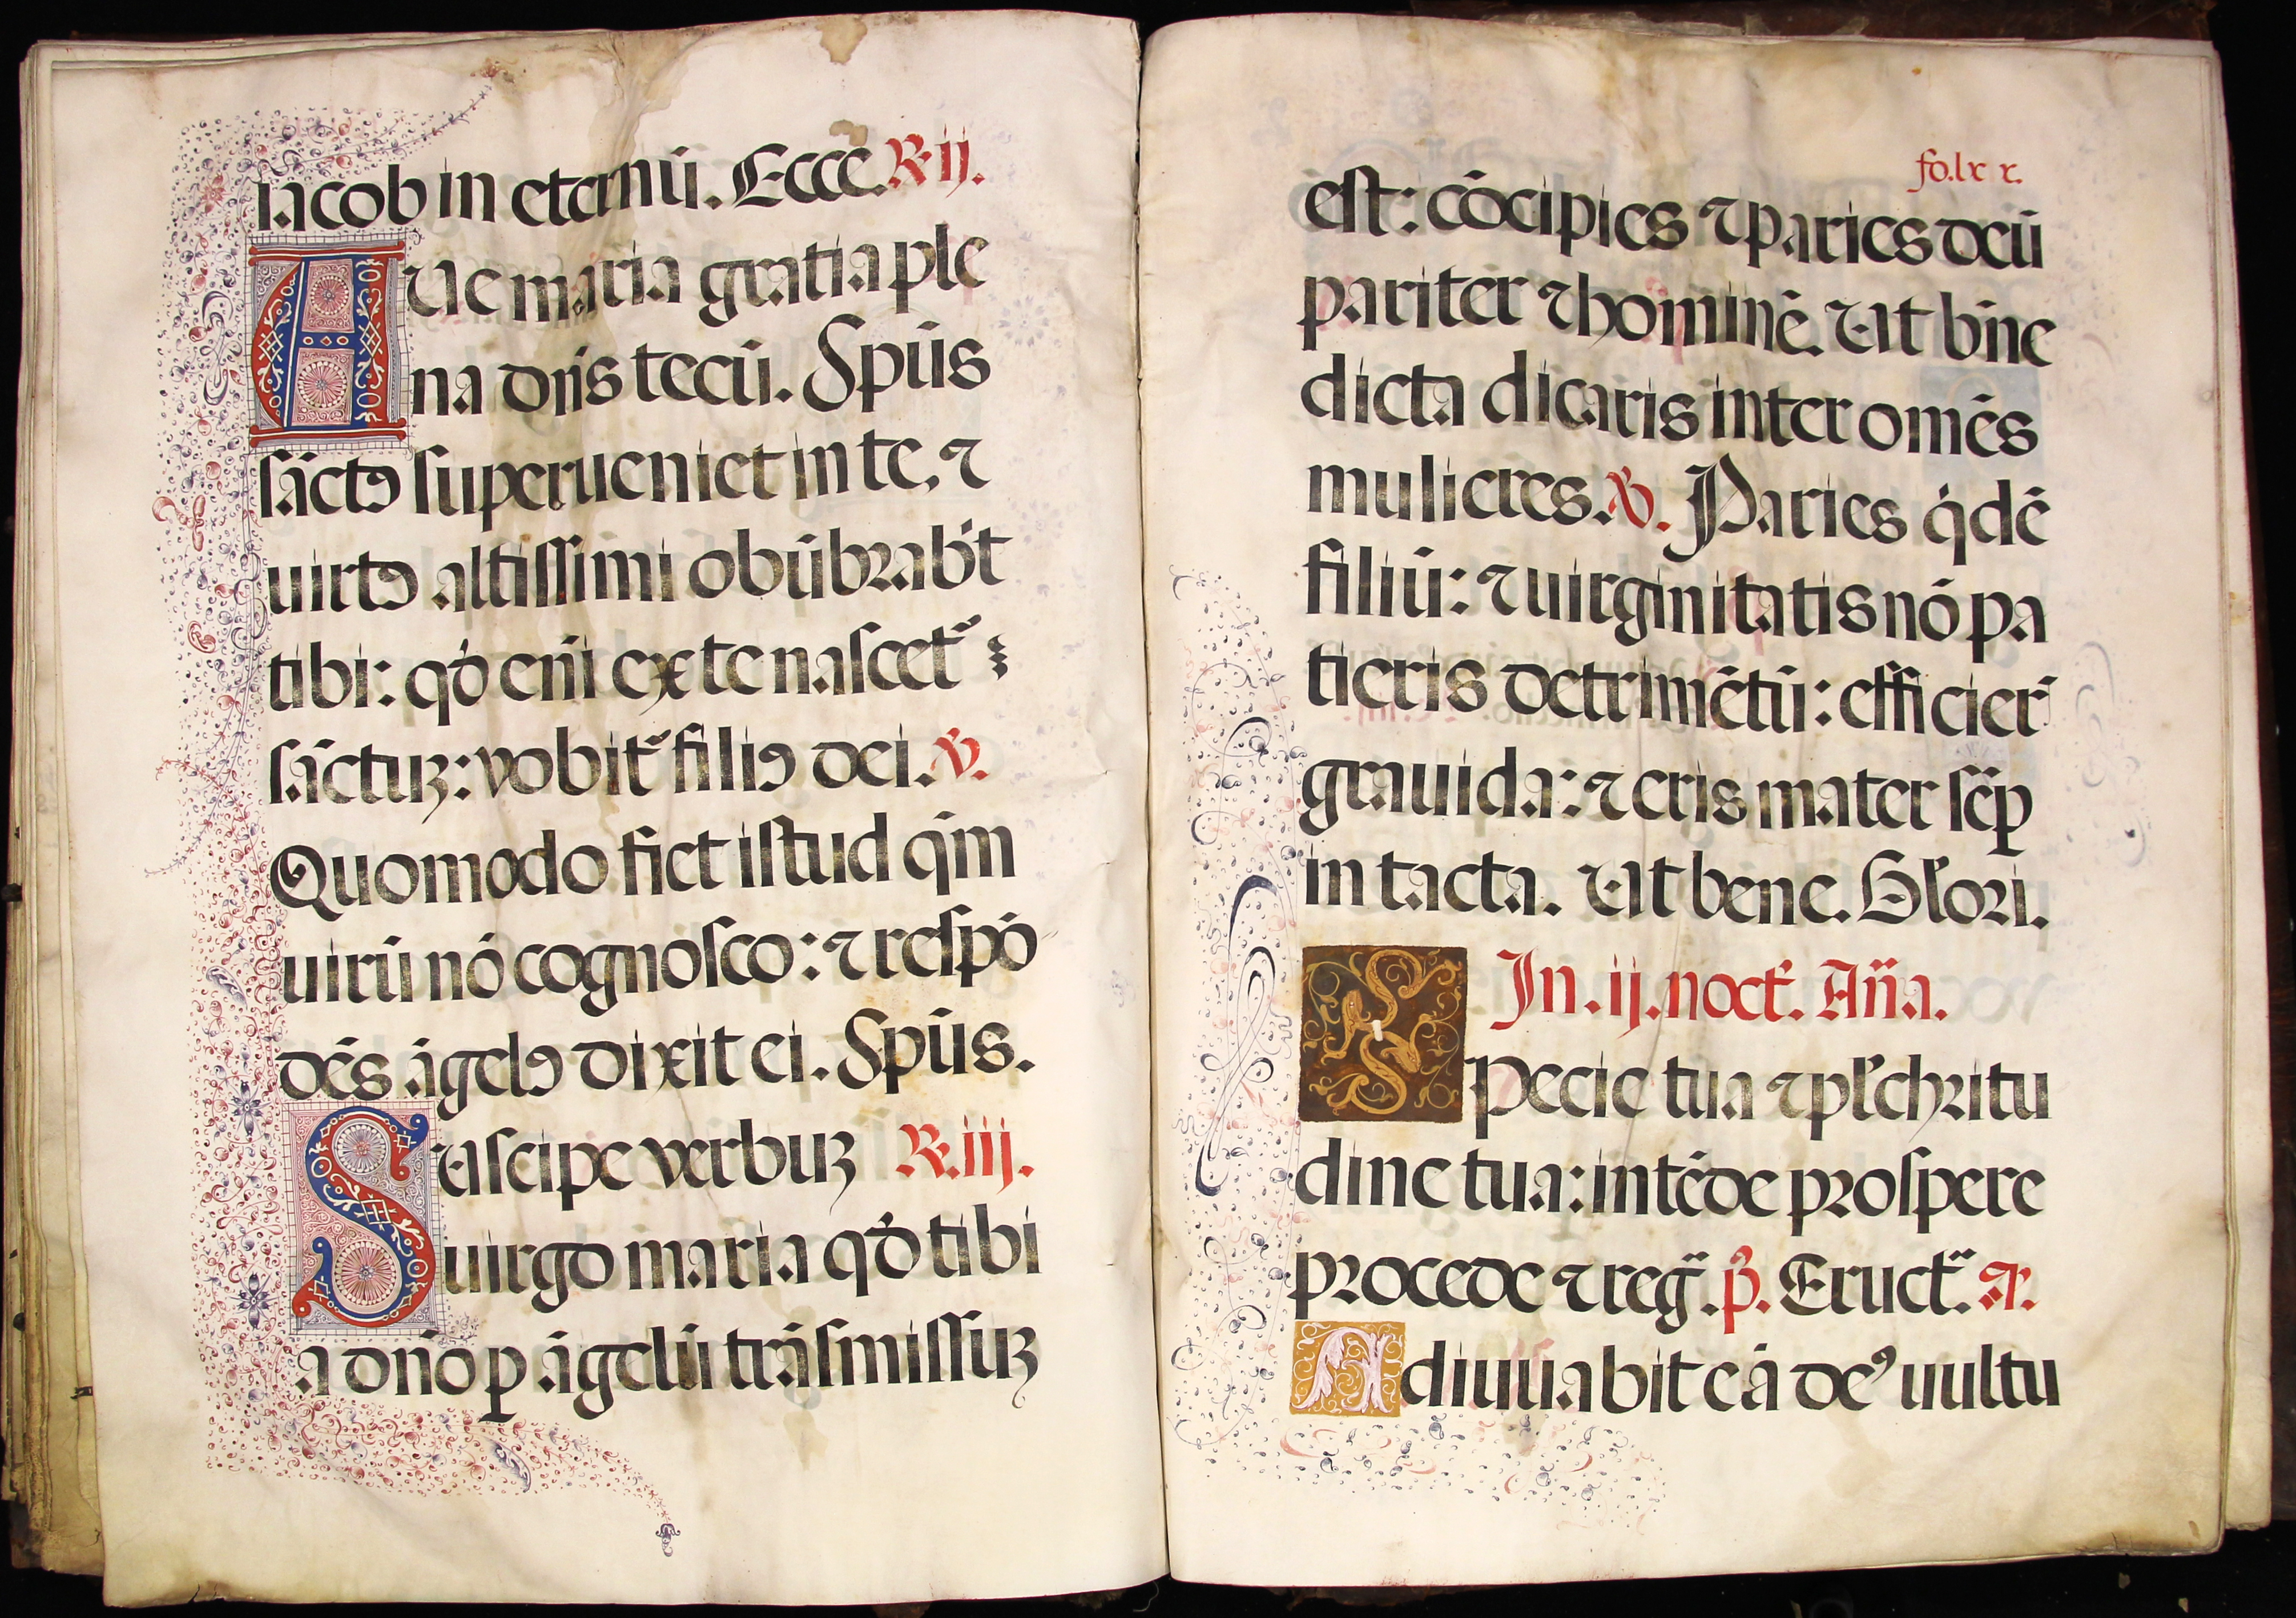 iacob in eternū. Ecce. R. ij.
AUe maria gratia ple
na dn̄s tecū. Spūs
sāctꝯ superueniet in te, ⁊
uirtꝯ altissimi obūbrab̄t
tibi: qđ eni̅ ex te nascet᷑
sāctuȝ: vobit᷑ filiꝯ dei. ℣.
Quomodo fiet istud qm̄
uirū nō cognosco: ⁊ respō
dēs āgelꝯ dixit ei. Spūs.
Uscipe verbuȝ R. iij.
S uirgo maria qđ tibi
a dn̄o ꝑ āgelū trāsmissuȝ
fo. lx x.
est: cōcipies ⁊ paries deū
pariter ⁊ hominē. Ut bn̄e
dicta dicaris inter omēs
mulieres. ℣. Paries q̇dē
filiū: ⁊ uirginitatis nō pa
tieris detrimētū: efficier᷑
grauida: ⁊ eris mater sēꝑ
intacta. Ut bene. Gl'ori.
In. ij. noct̄. An̄a.
SPecie tua ⁊ pl'chritu
dine tua: intēde prospere
procede ⁊ reg̃. p̄. Eruct̃. a.
Adiuuabit eā deꝰ uultu